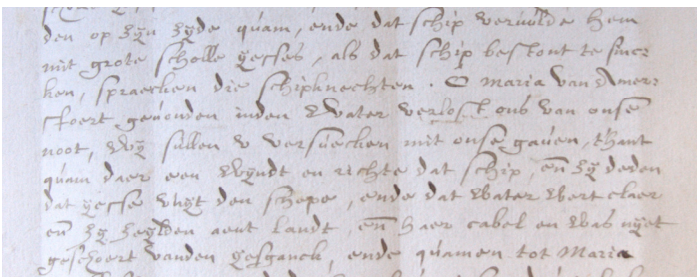 den op zyn zyde quam, ende dat schip vervolde hem
mit grote scholle yesses, als dat schip bestont te sinc-
ken, spraecken die schipknechten. O Maria van Amer-
sfoert gevonden inden Water verlost ons van onse
noot, Wy sullen v versuecken mit onse gauen, thant
quam daer een Wyndt en richte dat schip, en zy deden
dat yesse wuyt den schepe, ende dat Water Wert claer
en zy zeylden aent landt en haer cabel en Was nyet
geschoert vanden yesganck, ende quamen tot Maria